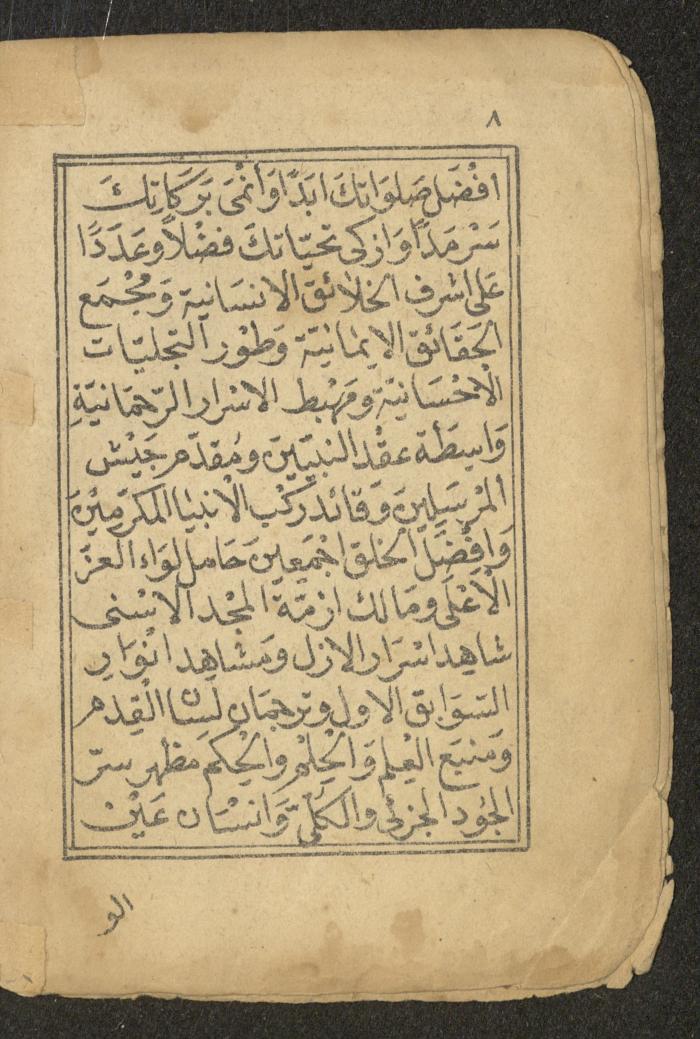 ٨
اَفْضَلَ صَلَوَاتِكَ اَبَدًا وَاَنْمَى بَرَكَاتِكَ
سَرْمَدًا وَاَزْكى تَحِيَّاتِكَ فَضْلاً وَعَدَدًا
عَلى اشرف الخلائق الانسانية وَمَجْمَع
الحَقَائق الايمانيّة وَطوْر التجليّات
الاحْسَانيّة ومَهْبط الاسْرار الرّحمَانيّةِ
وَاسِطَة عقْد النبيّينَ ومُقدّم جَيْش
المرْسَلينَ وَقائد رَكْب الانبيا المكرّمِيْنَ
وَافْضَل الخلق اجْمَعِينَ حَامل لوَاء العزّ
الْاَعْلَى ومَالك ازمّة المجْد الاسْنى
شاهد اسْرَار الازل ومَشاهد انْوَار
السّوَابق الاول وترجمَان لسَان القِدم
وَمنبَع العِلم وَالحِلْم والحِكَم مظهر سرّ
الجُود الجزئىّ والكُلّىّ وَانسْان عَيْن
الو